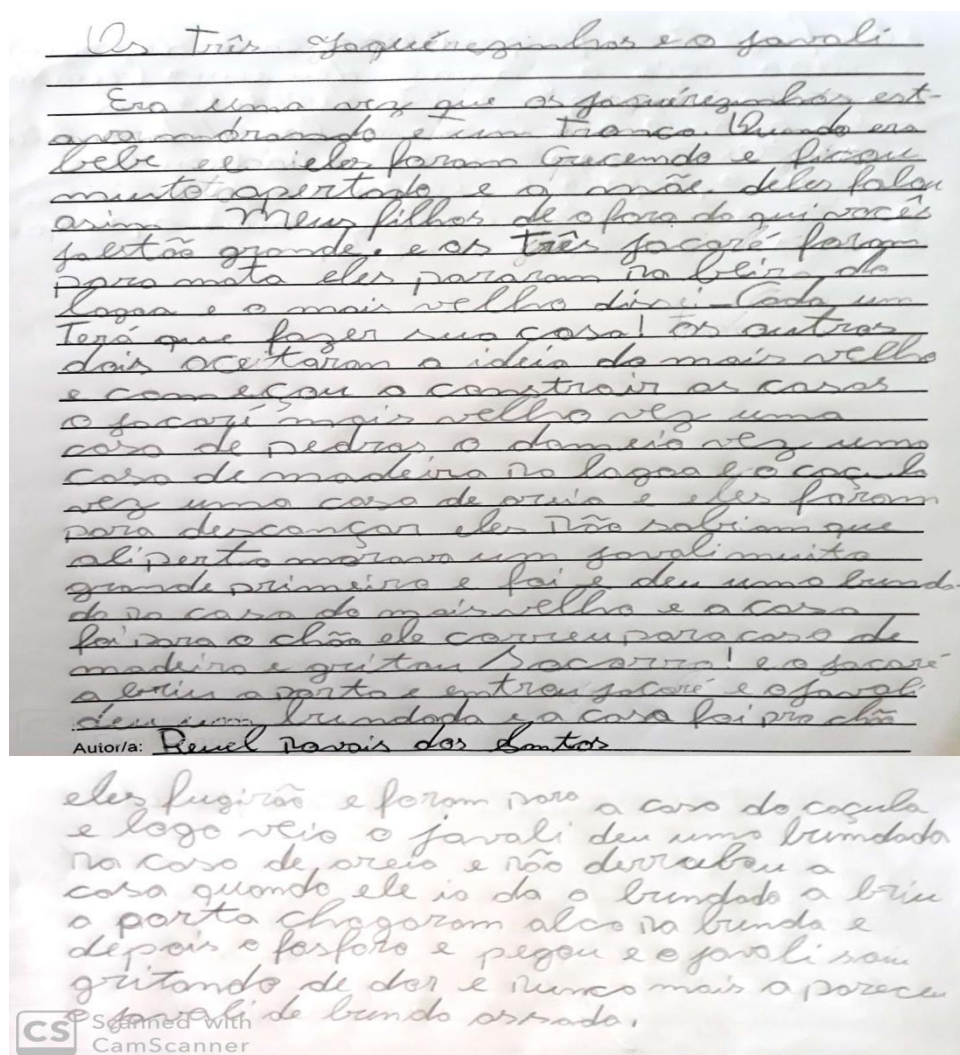 Os Três Jaquérezinhos e o javali
Era uma vez que os jaquérezinhos est-
ava morando e um Tronco. Quando era
bebe e eles foram Crecendo e ficou
muito apertado e a mãe deles falou
asim Meus filhos de o fora da qui vocês
ja estão grande. e os Três jacaré foram
para mata eles pararam na beira da
lagoa e o mais velho dissi - Cada um
Terá que fazer sua casa! os outros
dois aceitaram a ideia do mais velho
e começou a constroir as casas
o jacaré mais velho vez uma
casa de pedras o domeio vez uma
casa de madeira na lagoa e o caçula
vez uma casa de areia e eles foram
para descançar eles não sabiam que
ali perto morava um javali muito
grande primeiro e foi e deu uma bunda-
da na casa do mais velho e a casa
foi para o chão ele correu para casa de
madeira e gritou Socorro! e o jacaré
a briu a porta e entrou jacaré e o javali
deu uma bundada e a casa foi pro chão
Autor/a: Reuel Novais dos Santos
eles fugirão e foram para a casa do caçula
e logo veio o javali deu uma bumdada
na casa de areia e não derrubou a
casa quando ele ia da a bundada a briu
a porta chogaram alco na bunda e
depois o fosforo e pegou e o javali saiu
gritando de dor e nunca mais a pareceu
o javali de bunda assada.
CS Scanned with
CamScanner